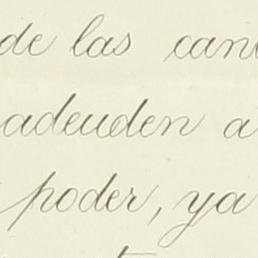 de las can
adeuden a
poder, ya